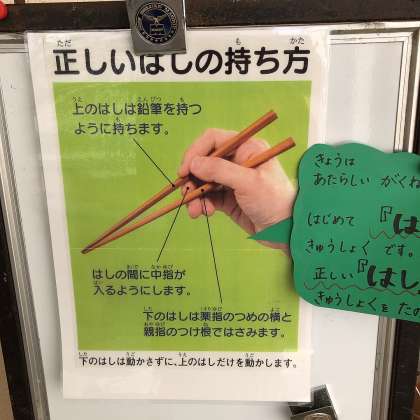 正しいはしの持ち方
上のはしは鉛筆を持つ
ように持ちます。
はしの間に中指が
入るようにします。
下のはしは薬指のつめの横と
親指のつけ根ではさみます。
下のはしは動かさずに、上のはしだけを動かします。
きょうは
あたらしい がくね
はじめて 『は
きゅうしょく です。
正しい『はし
きゅうしょくを たの